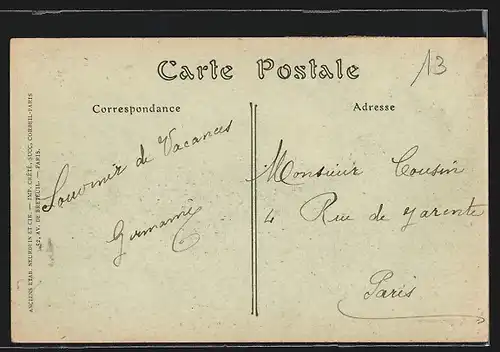 13
Carte Postale
Correspondance
Adresse
Souvenir de Vacances
Germaine
Monsieur Cousin
4 Rue de Jarente
Paris
ANCIENS ETAB. NEURDEIN ET CIE. — IMP. CRÉTÉ, SUCC. CORBEIL-PARIS
52, AV. DE BRETEUIL. — PARIS.